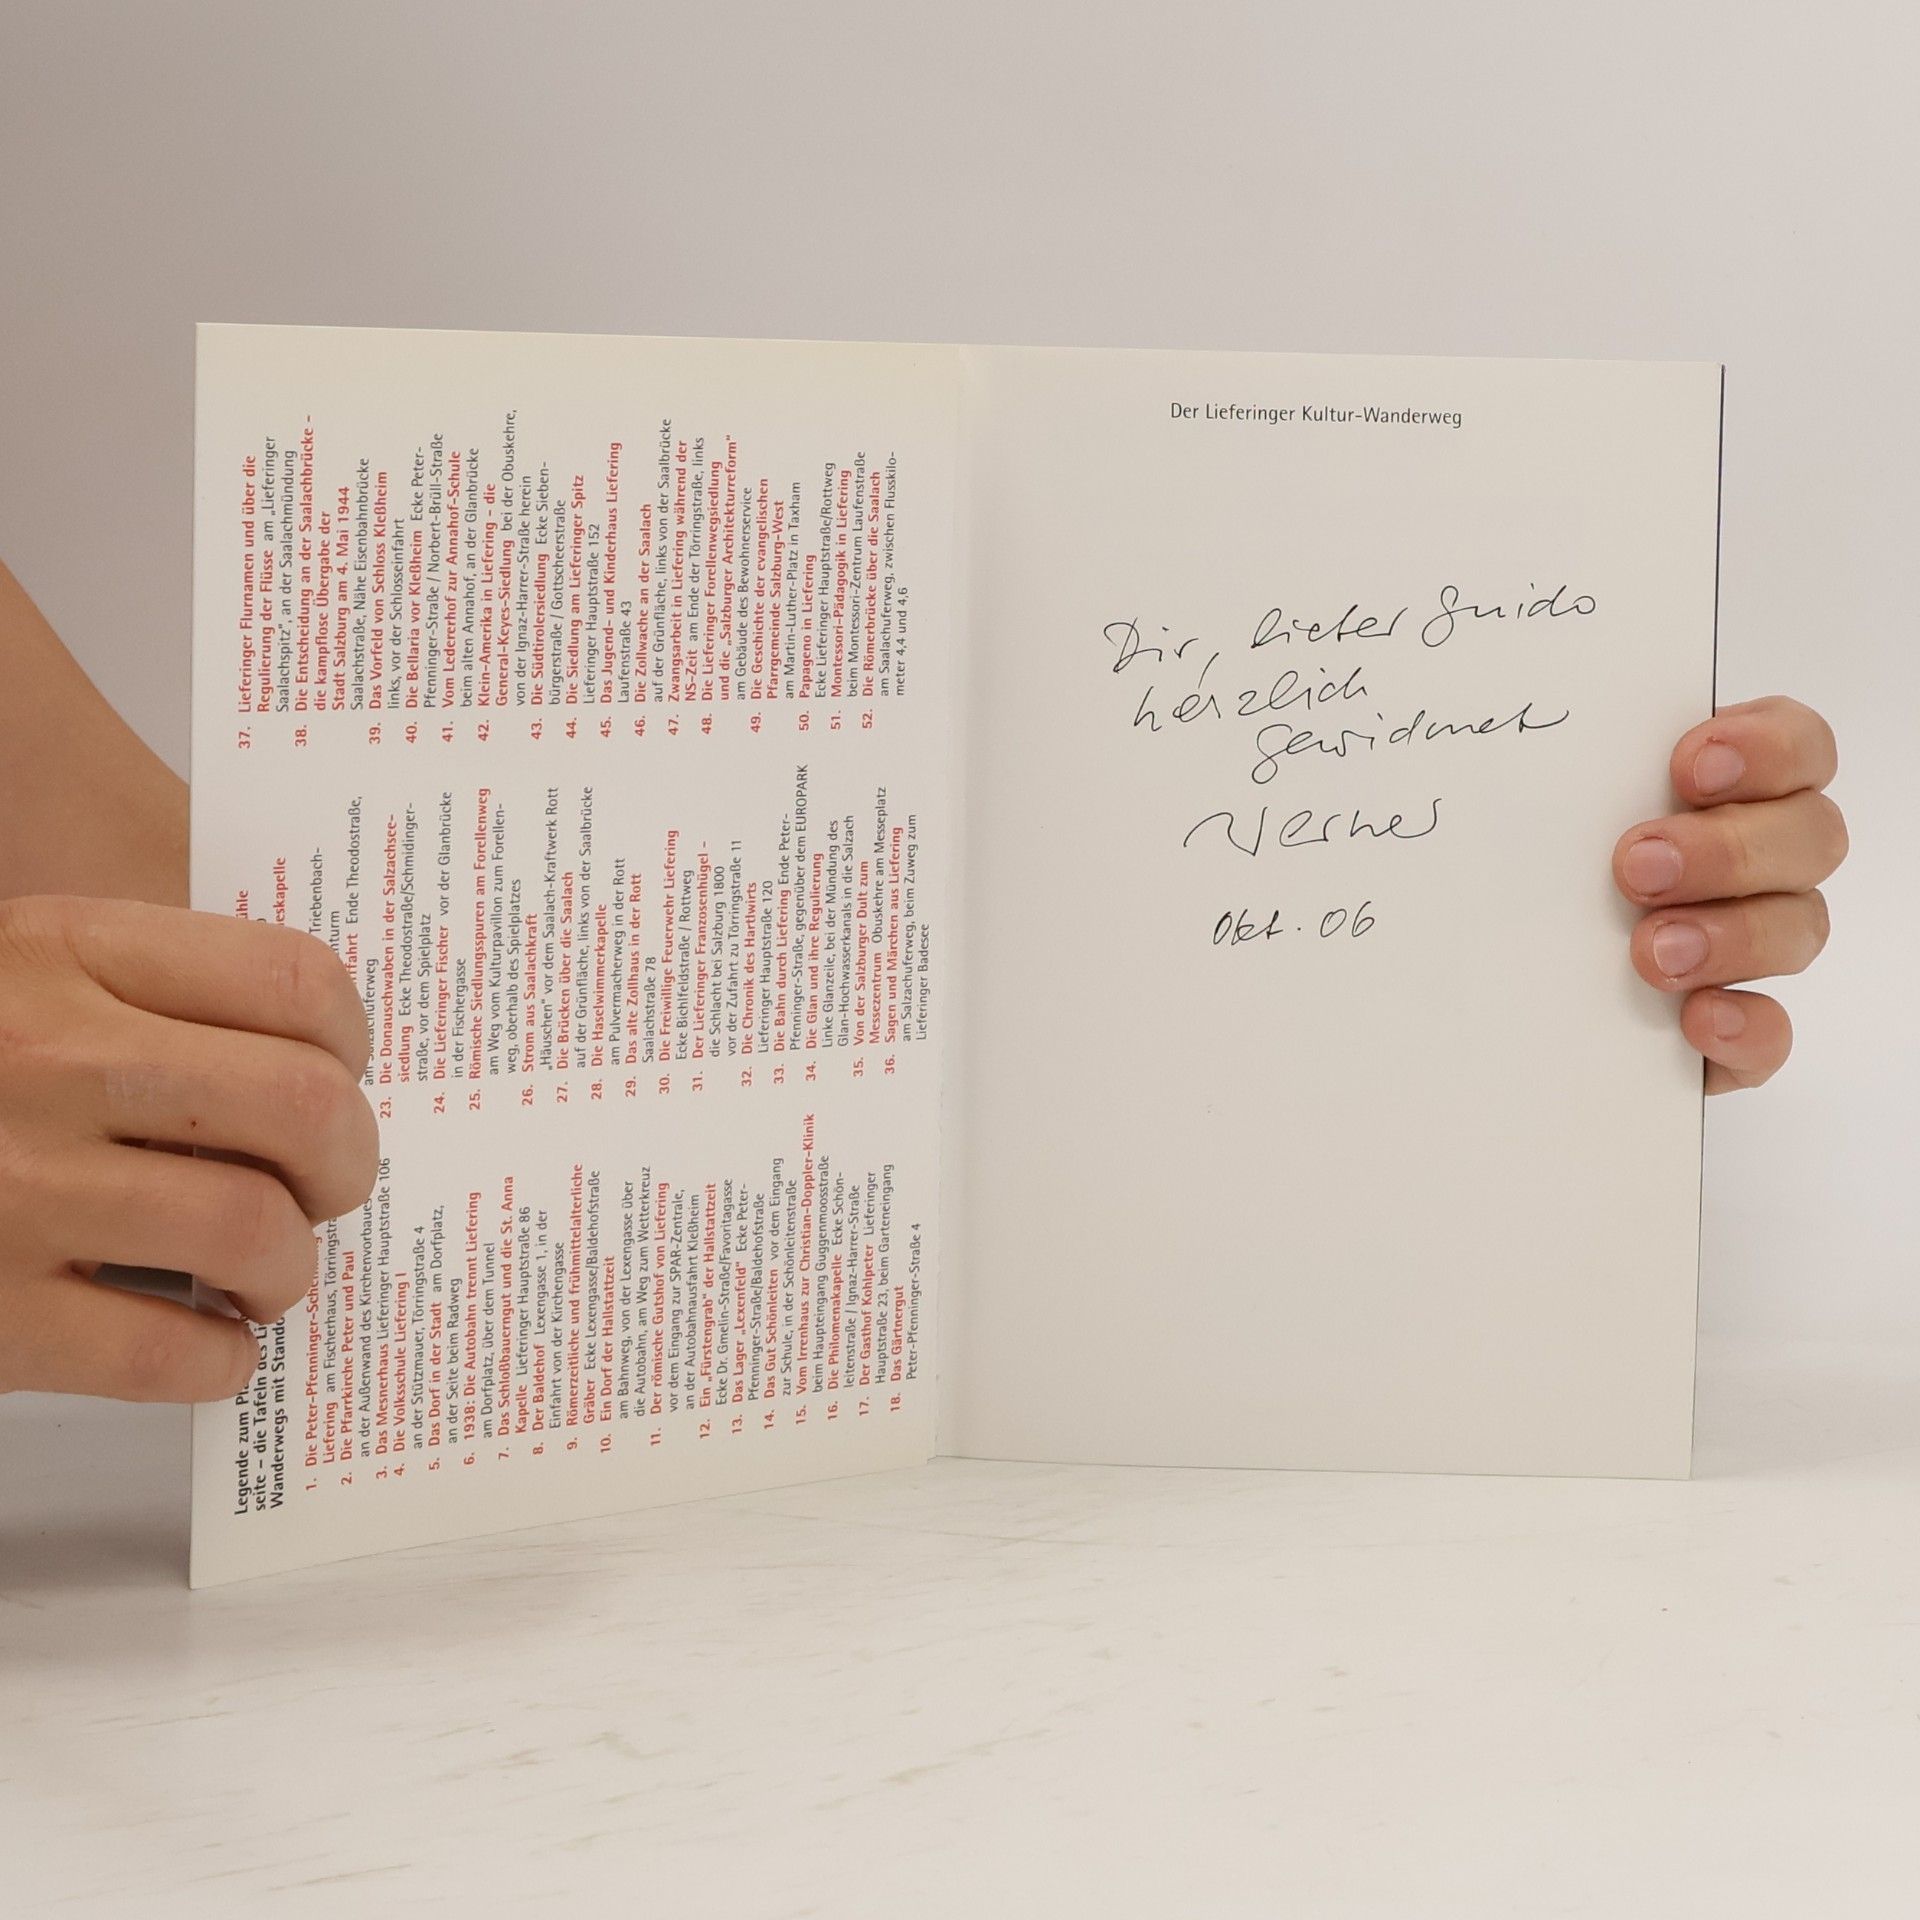 Legende zum
seite – die Tafeln des
Wanderwegs mit
1. Die Peter-Pfenninger-
Liefering am Fischerhaus,
2. Die Pfarrkirche Peter und Paul
an der Außenwand des Kirchenvorbaues
3. Das Mesnerhaus Lieferinger Hauptstraße 106
4. Die Volksschule Liefering I
an der Stützmauer, Törringstraße 4
5. Das Dorf in der Stadt am Dorfplatz,
an der Seite beim Radweg
6. 1938: Die Autobahn trennt Liefering
am Dorfplatz, über dem Tunnel
7. Das Schloßbauerngut und die St. Anna
Kapelle Lieferinger Hauptstraße 86
8. Der Baldehof Lexengasse 1, in der
Einfahrt von der Kirchengasse
9. Römerzeitliche und frühmittelalterliche
Gräber Ecke Lexengasse/Baldehofstraße
10. Ein Dorf der Hallstattzeit
am Bahnweg, von der Lexengasse über
die Autobahn, am Weg zum Wetterkreuz
11. Der römische Gutshof von Liefering
vor dem Eingang zur SPAR-Zentrale,
an der Autobahnausfahrt Kleßheim
12. Ein „Fürstengrab" der Hallstattzeit
Ecke Dr. Gmelin-Straße/Favoritagasse
13. Das Lager „Lexenfeld" Ecke Peter-
Pfenninger-Straße/Baldehofstraße
14. Das Gut Schönleiten vor dem Eingang
zur Schule, in der Schönleitenstraße
15. Vom Irrenhaus zur Christian-Doppler-Klinik
beim Haupteingang Guggenmoosstraße
16. Die Philomenakapelle Ecke Schön-
leitenstraße / Ignaz-Harrer-Straße
17. Der Gasthof Kohlpeter Lieferinger
Hauptstraße 23, beim Garteneingang
18. Das Gärtnergut
Peter-Pfenninger-Straße 4
Triebenbach-
Ende Theodostraße,
23. Die Donauschwaben in der Salzachsee-
siedlung Ecke Theodostraße/Schmidinger-
straße, vor dem Spielplatz
24. Die Lieferinger Fischer vor der Glanbrücke
in der Fischergasse
25. Römische Siedlungsspuren am Forellenweg
am Weg vom Kulturpavillon zum Forellen-
weg, oberhalb des Spielplatzes
26. Strom aus Saalachkraft
„Häuschen" vor dem Saalach-Kraftwerk Rott
27. Die Brücken über die Saalach
auf der Grünfläche, links von der Saalbrücke
28. Die Haselwimmerkapelle
am Pulvermacherweg in der Rott
29. Das alte Zollhaus in der Rott
Saalachstraße 78
30. Die Freiwillige Feuerwehr Liefering
Ecke Bichlfeldstraße / Rottweg
31. Der Lieferinger Franzosenhügel –
die Schlacht bei Salzburg 1800
vor der Zufahrt zu Törringstraße 11
32. Die Chronik des Hartlwirts
Lieferinger Hauptstraße 120
33. Die Bahn durch Liefering Ende Peter-
Pfenninger-Straße, gegenüber dem EUROPARK
34. Die Glan und ihre Regulierung
Linke Glanzeile, bei der Mündung des
Glan-Hochwasserkanals in die Salzach
35. Von der Salzburger Dult zum
Messezentrum Obuskehre am Messeplatz
36. Sagen und Märchen aus Liefering
am Salzachuferweg, beim Zuweg zum
Lieferinger Badesee
37. Lieferinger Flurnamen und über die
Regulierung der Flüsse am „Lieferinger
Saalachspitz", an der Saalachmündung
38. Die Entscheidung an der Saalachbrücke –
die kampflose Übergabe der
Stadt Salzburg am 4. Mai 1944
Saalachstraße, Nähe Eisenbahnbrücke
39. Das Vorfeld von Schloss Kleßheim
links, vor der Schlosseinfahrt
40. Die Bellaria vor Kleßheim Ecke Peter-
Pfenninger-Straße / Norbert-Brüll-Straße
41. Vom Ledererhof zur Annahof-Schule
beim alten Annahof, an der Glanbrücke
42. Klein-Amerika in Liefering – die
General-Keyes-Siedlung bei der Obuskehre,
von der Ignaz-Harrer-Straße herein
43. Die Südtirolersiedlung Ecke Sieben-
bürgerstraße / Gottscheerstraße
44. Die Siedlung am Lieferinger Spitz
Lieferinger Hauptstraße 152
45. Das Jugend- und Kinderhaus Liefering
Laufenstraße 43
46. Die Zollwache an der Saalach
auf der Grünfläche, links von der Saalbrücke
47. Zwangsarbeit in Liefering während der
NS-Zeit am Ende der Törringstraße, links
48. Die Lieferinger Forellenwegsiedlung
und die „Salzburger Architekturreform"
am Gebäude des Bewohnerservice
49. Die Geschichte der evangelischen
Pfarrgemeinde Salzburg-West
am Martin-Luther-Platz in Taxham
50. Papageno in Liefering
Ecke Lieferinger Hauptstraße/Rottweg
51. Montessori-Pädagogik in Liefering
beim Montessori-Zentrum Laufenstraße
52. Die Römerbrücke über die Saalach
am Saalachuferweg, zwischen Flusskilo-
meter 4,4 und 4,6
Der Lieferinger Kultur-Wanderweg
Dir, lieber Guido
herzlich
gewidmet
Werner
Okt. 06